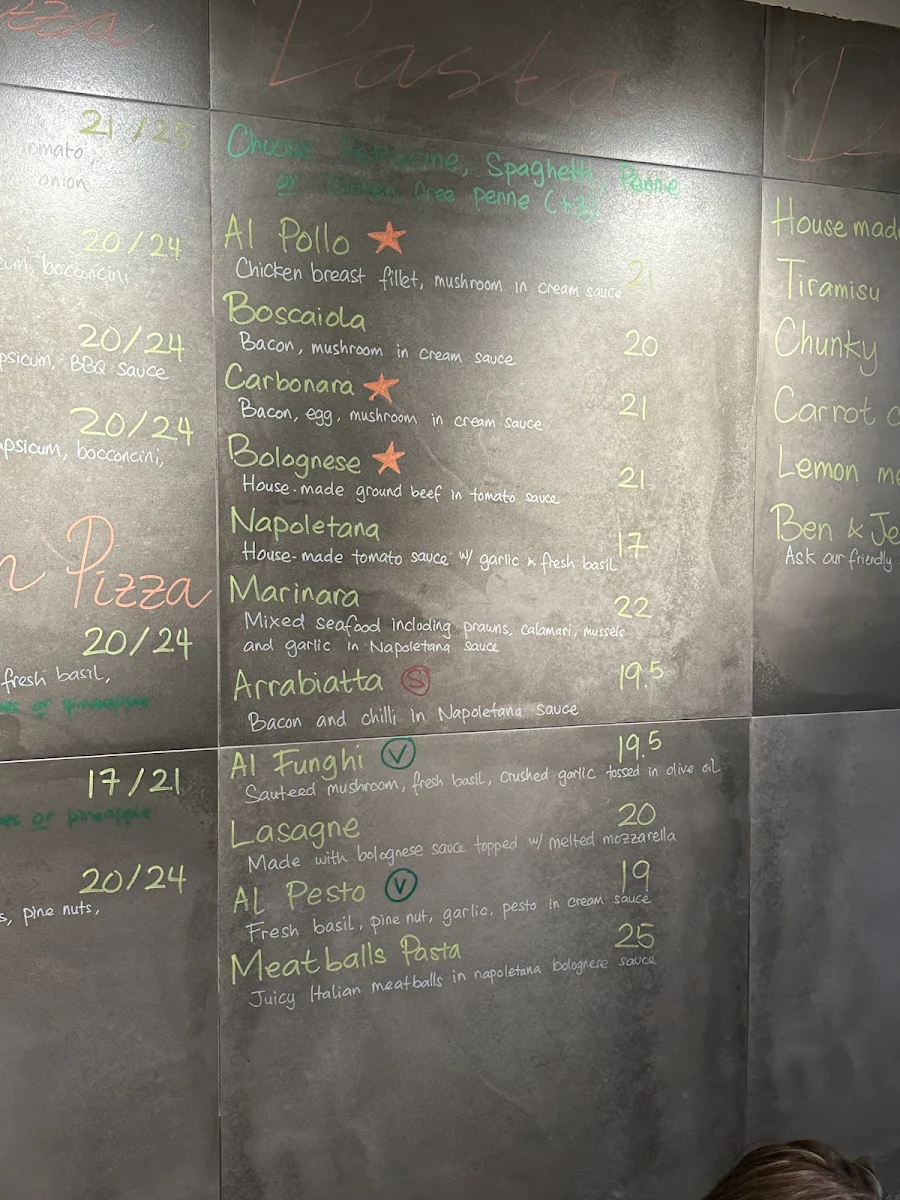 zza
21/25
omato,
onion
20/24
bocconcini
20/24
psicum, BBQ sauce
20/24
psicum, bocconcini,
Pizza
20/24
fresh basil,
or pineapple
17/21
or pineapple
20/24
s, pine nuts,
Pasta
Choose Fettuccine, Spaghetti, Penne
or Gluten free penne (+3)
Al Pollo
21
Chicken breast fillet, mushroom in cream sauce
Boscaiola
20
Bacon, mushroom in cream sauce
Carbonara
21
Bacon, egg, mushroom in cream sauce
Bolognese
21
House-made ground beef in tomato sauce
Napoletana
17
House-made tomato sauce w/ garlic & fresh basil
Marinara
22
Mixed seafood including prawns, calamari, mussels
and garlic in Napoletana sauce
Arrabiatta S
19.5
Bacon and chilli in Napoletana sauce
Al Funghi V
19.5
Sauteed mushroom, fresh basil, crushed garlic tossed in olive oil
Lasagne
20
Made with bolognese sauce topped w/ melted mozzarella
Al Pesto V
19
Fresh basil, pine nut, garlic, pesto in cream sauce
Meatballs Pasta
25
Juicy Italian meatballs in napoletana bolognese sauce
D
House mad
Tiramisu
Chunky
Carrot c
Lemon me
Ben & Je
Ask our friendly